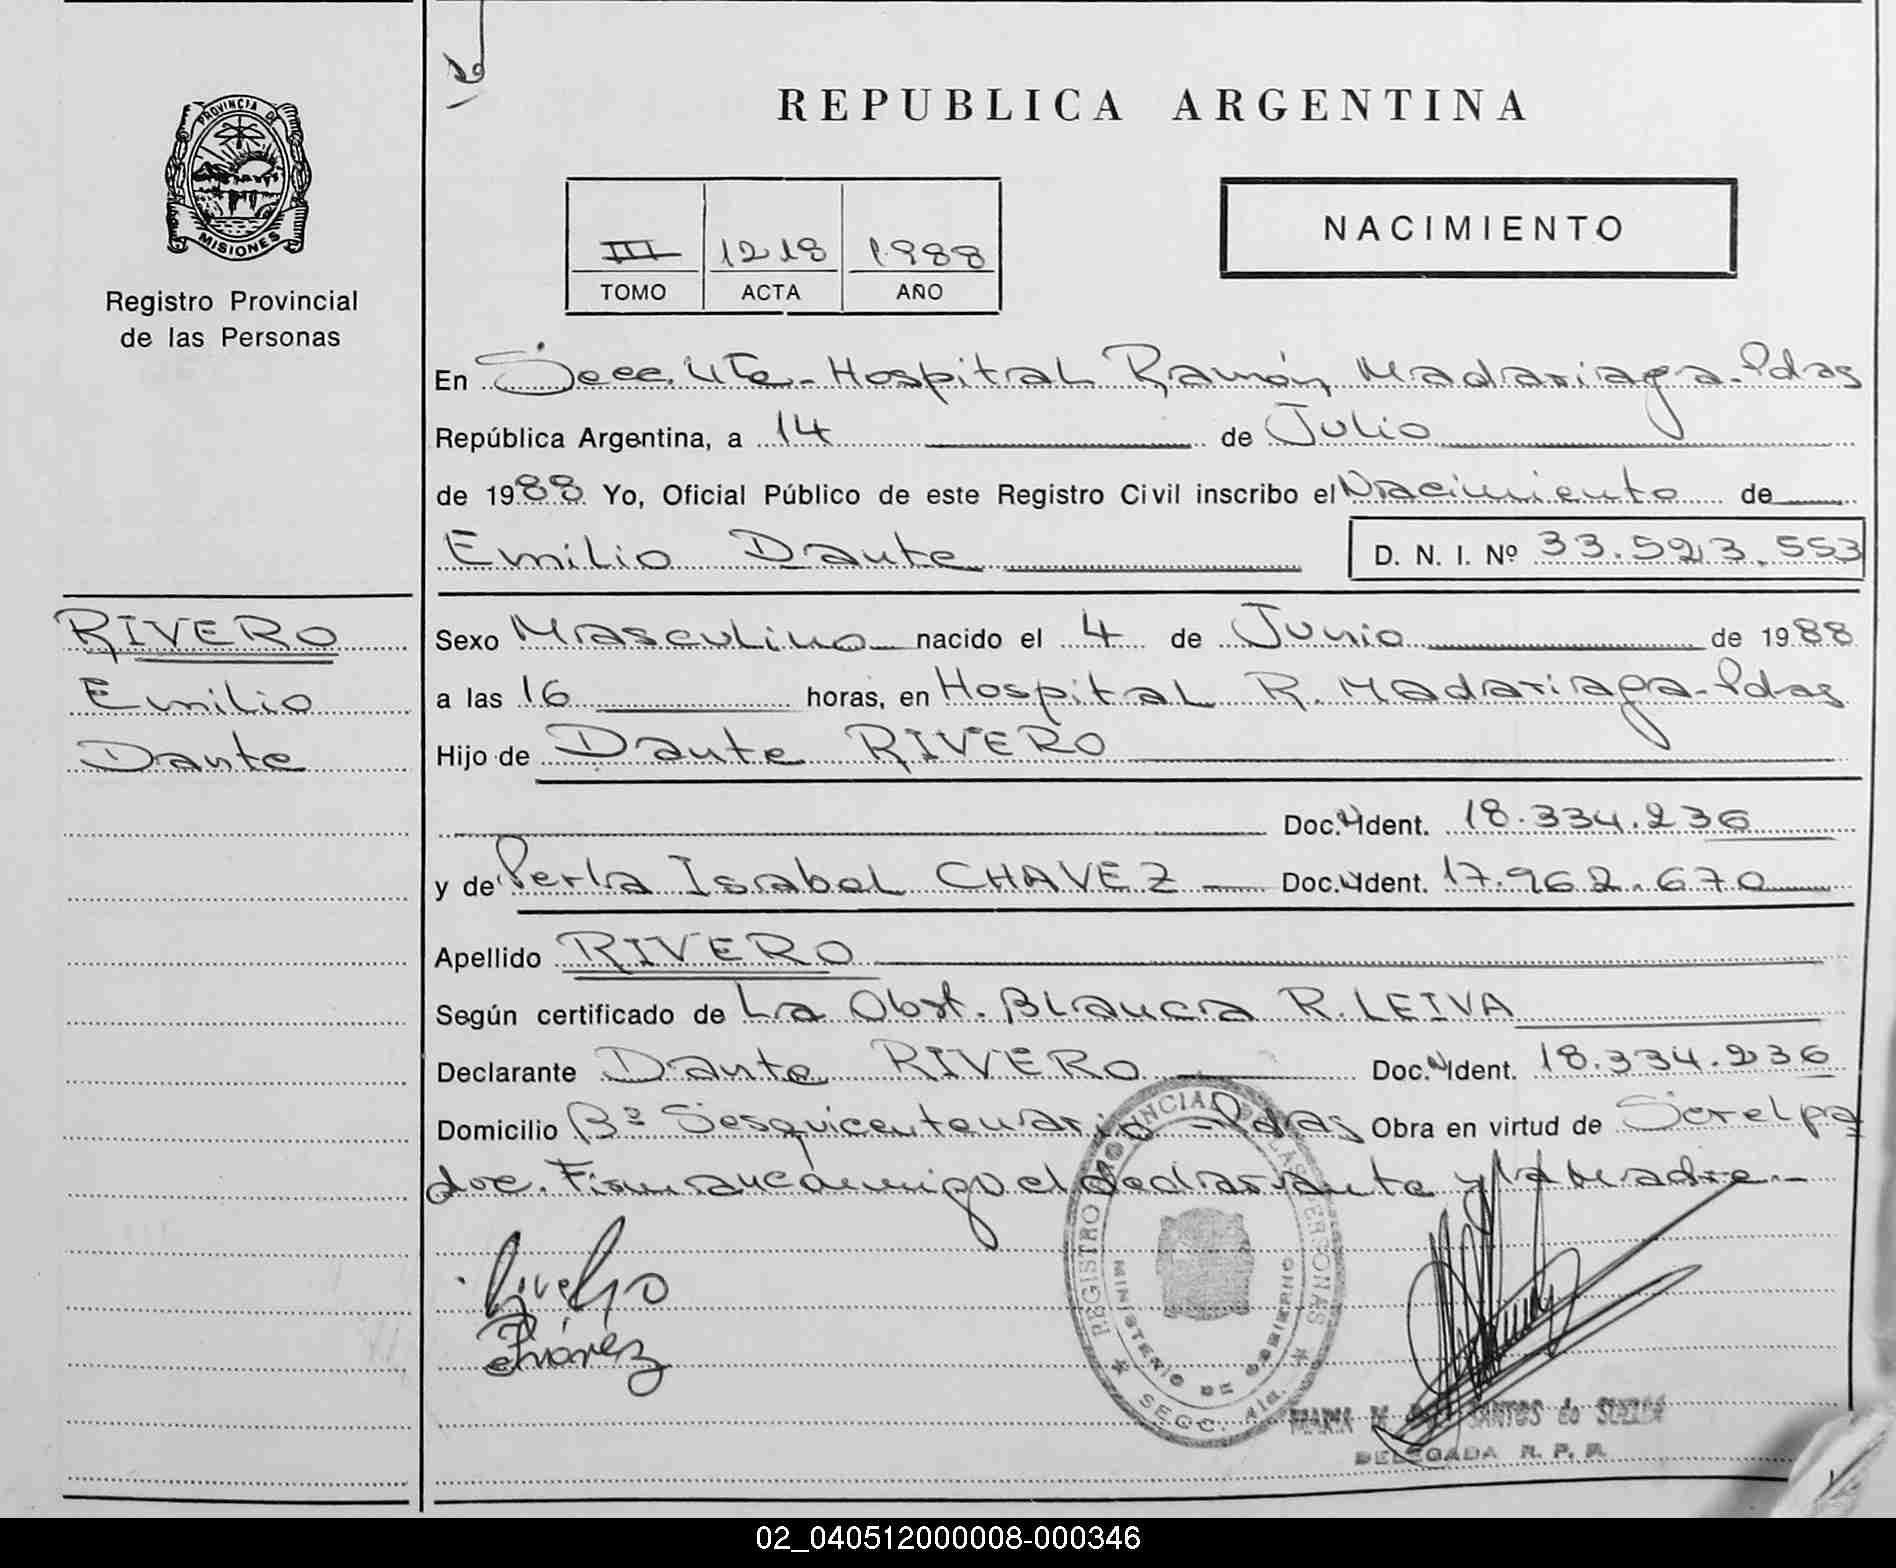 PROVINCIA DE
MISIONES
Registro Provincial
de las Personas
REPUBLICA ARGENTINA
III 1218 1988
TOMO ACTA AÑO
NACIMIENTO
En Secc. 4ta. Hospital Ramón Madariaga. Pdas
República Argentina, a 14 de Julio
de 1988 Yo, Oficial Público de este Registro Civil inscribo el Nacimiento de
Emilio Dante D. N. I. Nº 33.523.553
RIVERO
Emilio
Dante
Sexo Masculino nacido el 4 de Junio de 1988
a las 16 horas, en Hospital R. Madariaga - Pdas
Hijo de Dante RIVERO
Doc. Ident. 18.334.236
y de Perla Isabel CHAVEZ Doc. Ident. 17.962.670
Apellido RIVERO
Según certificado de La Obst. Blanca R. LEIVA
Declarante Dante RIVERO Doc. Ident. 18.334.236
Domicilio Bº Sesquicentenario - Pdas Obra en virtud de
doc. Firman conmigo el declarante y la Madre.-
Rivero
Chávez
REGISTRO PROVINCIAL DE LAS PERSONAS
MINISTERIO DE GOBIERNO
SECC. 4ta.
MARIA SANTOS de
DELEGADA R. P. P.
02_040512000008-000346